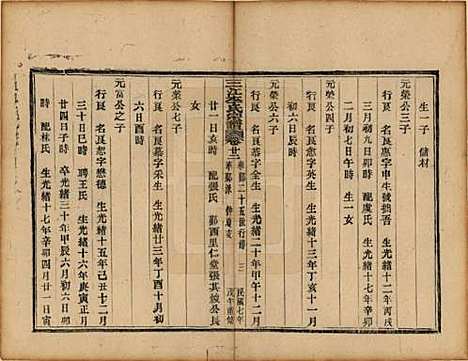 生一子 儲材
行良 名良惠字申生號拙吾 生光緒十二年丙戌
三月初九日卯時 配虞氏 生光緒十七年辛卯
二月初七日午時 生一女
元榮公四子
行良 名良愈字英生 生光緒十三年丁亥十一月
初六日辰時
元榮公六子
行良 名良慈字金生 生光緒二十年甲午十二月
三江李氏宗譜 卷廿二 三 民國七年
廿一日亥時 配張氏 鄞西里仁堂張其綬公長
女
元榮公七子
行良 名良慕字采生 生光緒廿三年丁酉十月初
六日酉時
元富公之子
行良 名良宏字懋德 生光緒十五年己丑十二月
三十日巳時 聘王氏 生光緒十六年庚寅正月
廿四日子時 卒光緒三十年甲辰六月初六日卯
時 配林氏 生光緒十七年辛卯四月廿一日寅